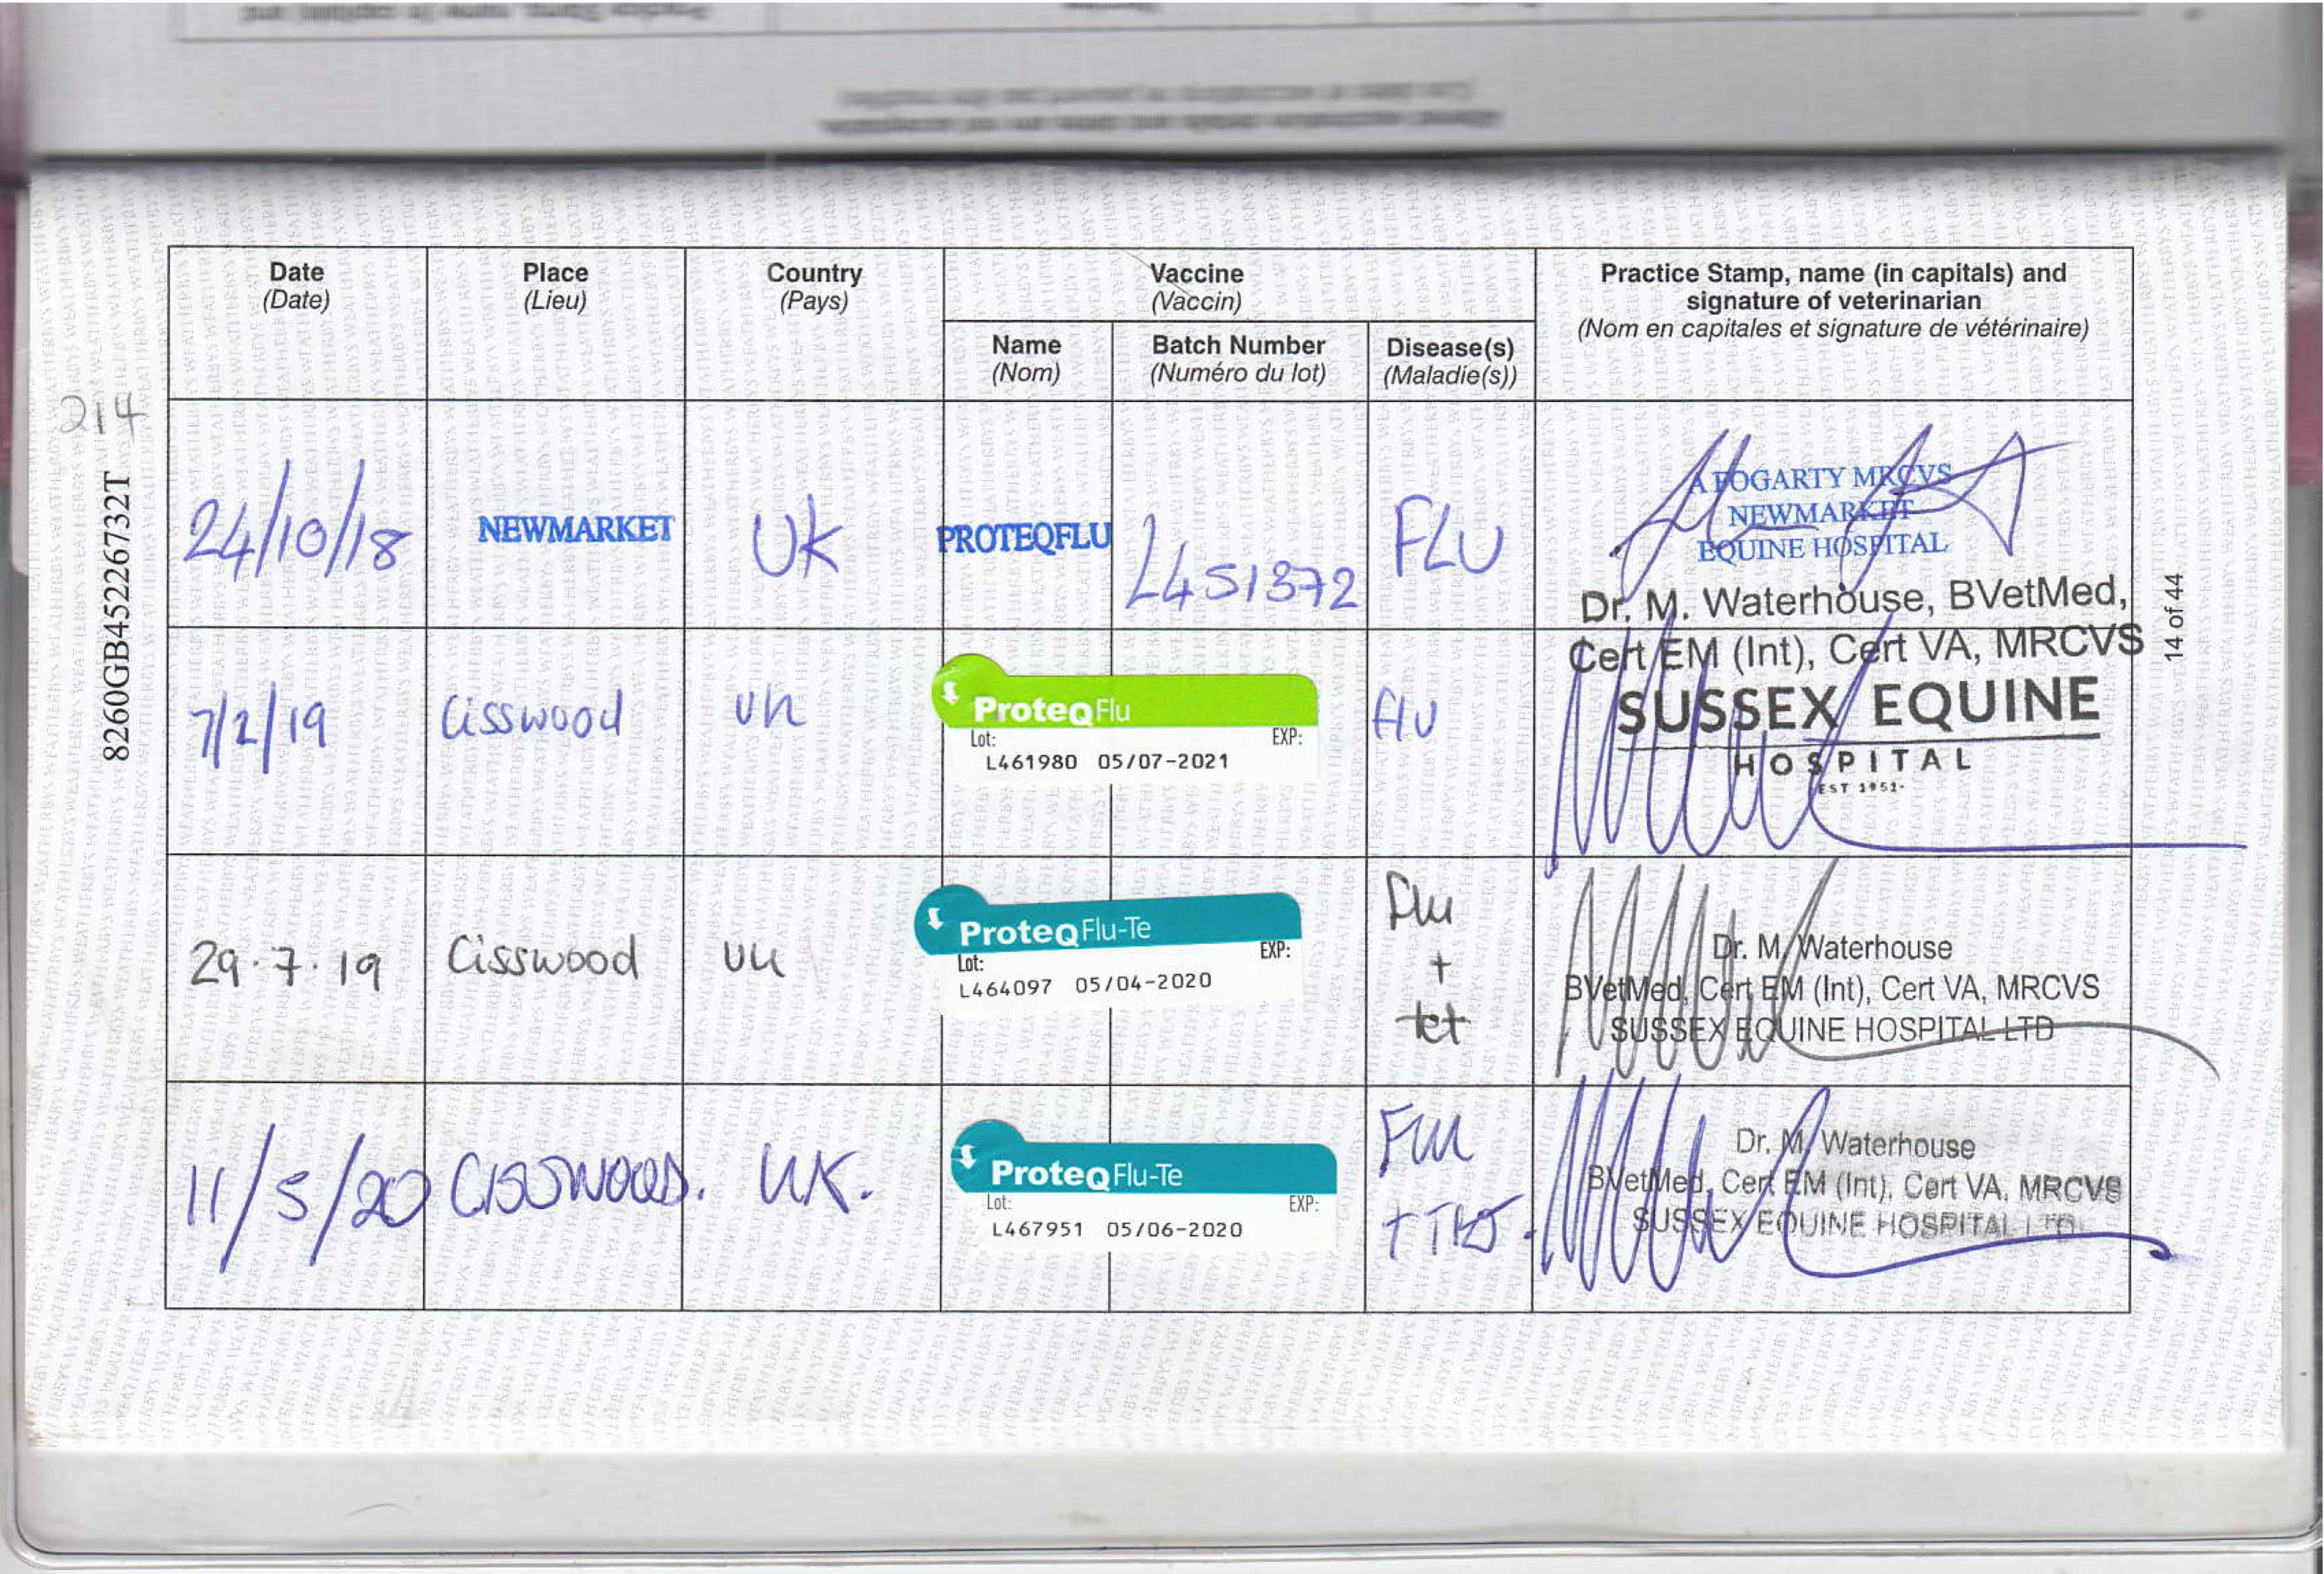 Date
(Date)
Place
(Lieu)
Country
(Pays)
Vaccine
(Vaccin)
Practice Stamp, name (in capitals) and
signature of veterinarian
(Nom en capitales et signature de vétérinaire)
Name
(Nom)
Batch Number
(Numéro du lot)
Disease(s)
(Maladie(s))
214
8260GB45226732T
14 of 44
24/10/18
NEWMARKET
UK
PROTEQFLU
L451372
FLU
A FOGARTY MRCVS
NEWMARKET
EQUINE HOSPITAL
7/2/19
Cisswood
UK
ProteqFlu
Lot: EXP:
L461980 05/07-2021
flu
Dr. M. Waterhouse, BVetMed,
Cert EM (Int), Cert VA, MRCVS
SUSSEX EQUINE
HOSPITAL
EST 1951
29.7.19
Cisswood
UK
ProteqFlu-Te
Lot: EXP:
L464097 05/04-2020
Flu
+
tet
Dr. M. Waterhouse
BVetMed, Cert EM (Int), Cert VA, MRCVS
SUSSEX EQUINE HOSPITAL LTD
11/5/20
Cisswood.
UK.
ProteqFlu-Te
Lot: EXP:
L467951 05/06-2020
Flu
Dr. M. Waterhouse
BVetMed, Cert EM (Int), Cert VA, MRCVS
SUSSEX EQUINE HOSPITAL LTD